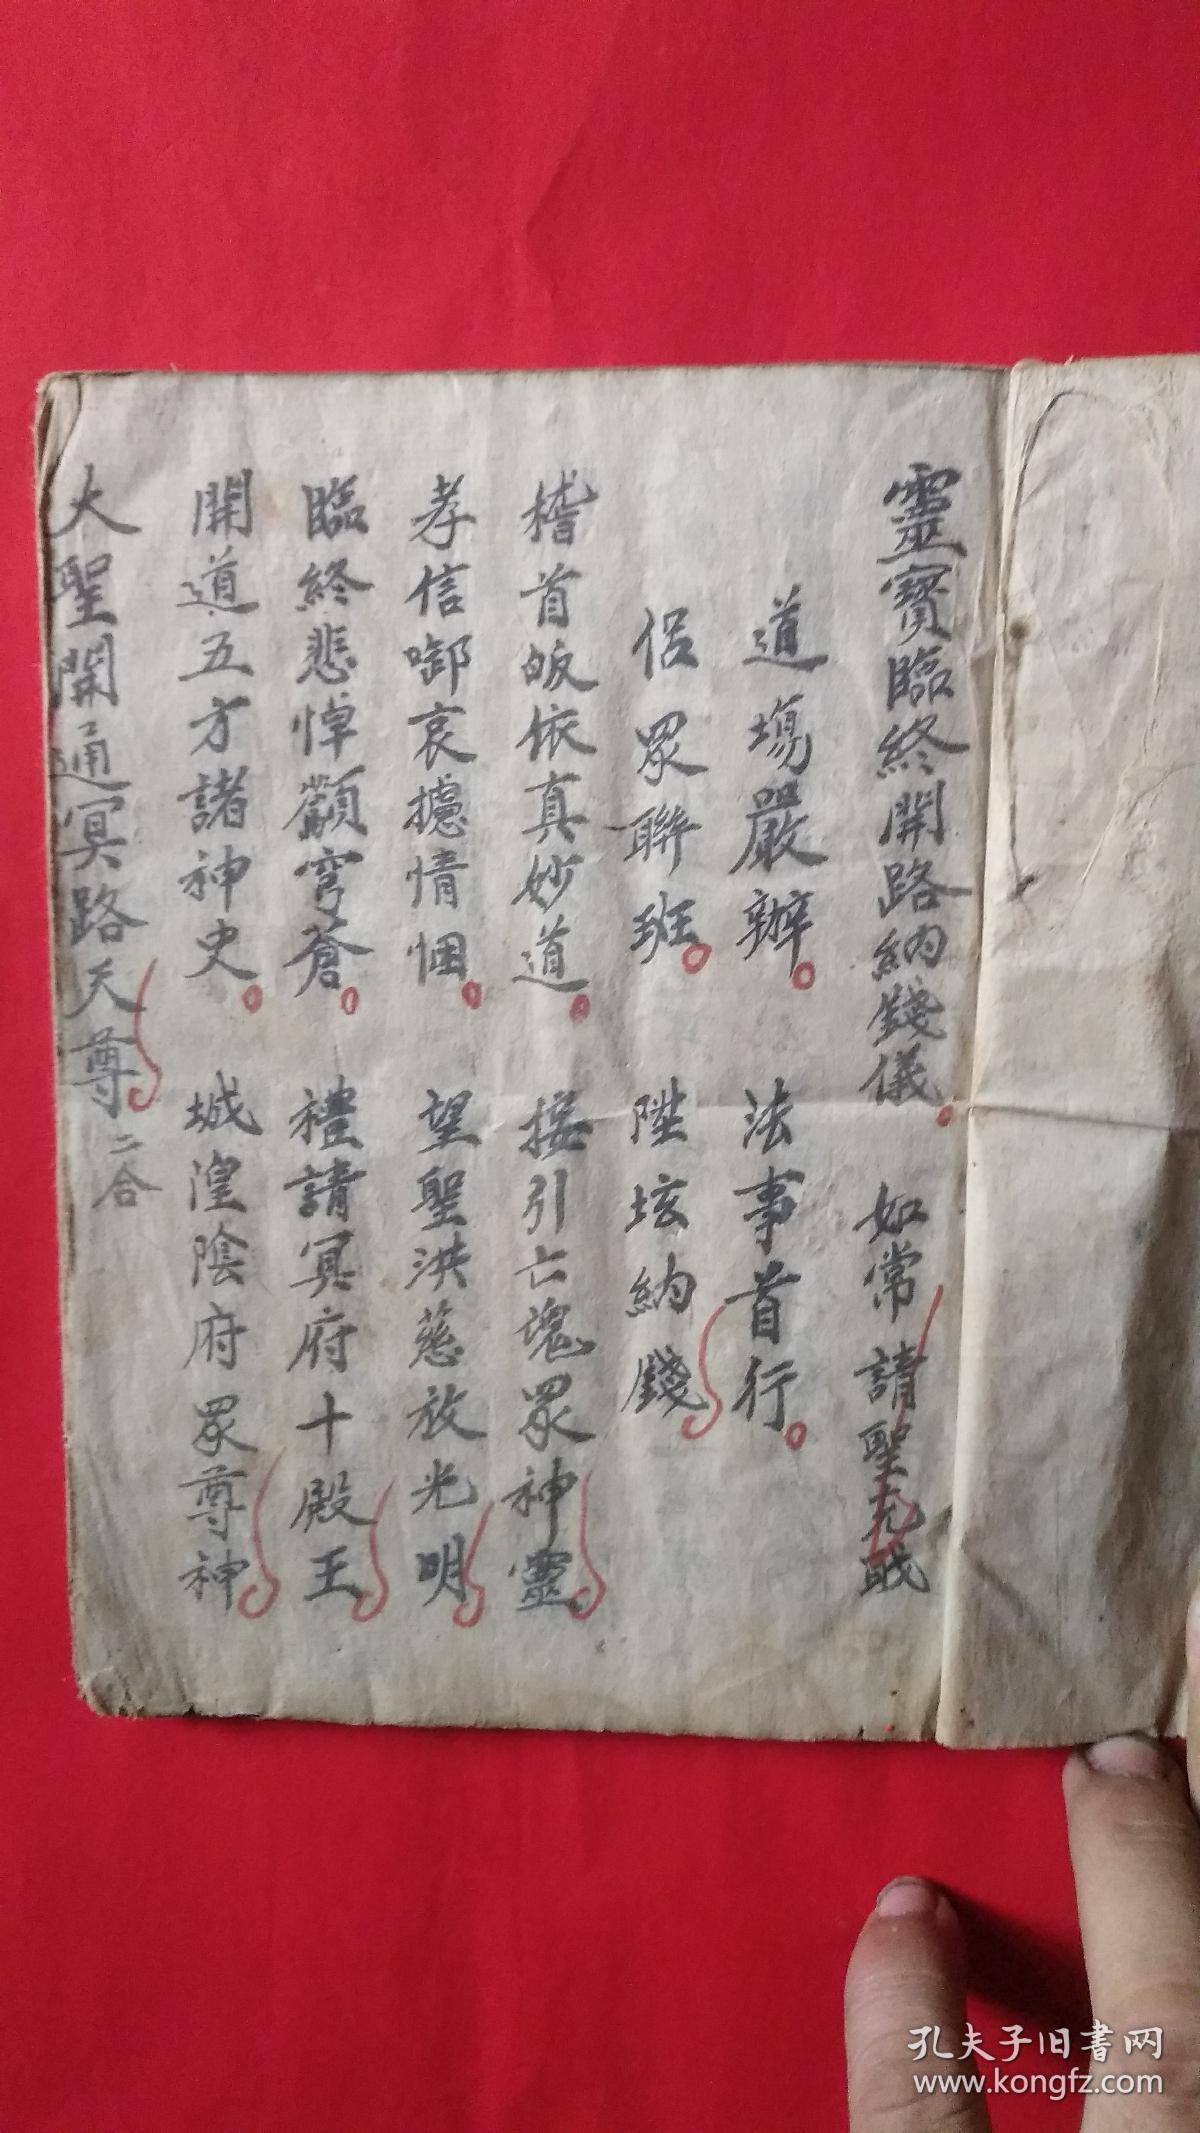 靈寶臨終開路納錢儀。 如常請聖
道場嚴辦。 法事首行。
侶眾聯班。 陞坛納錢
稽首皈依真妙道。 接引亡魂眾神靈
孝信啣哀攄情悃。 望聖洪慈放光明
臨終悲悼顲穹蒼。 禮請冥府十殿王
開道五方諸神史。 城湟陰府眾尊神
大聖開通冥路天尊 二合
孔夫子旧书网
www.kongfz.com